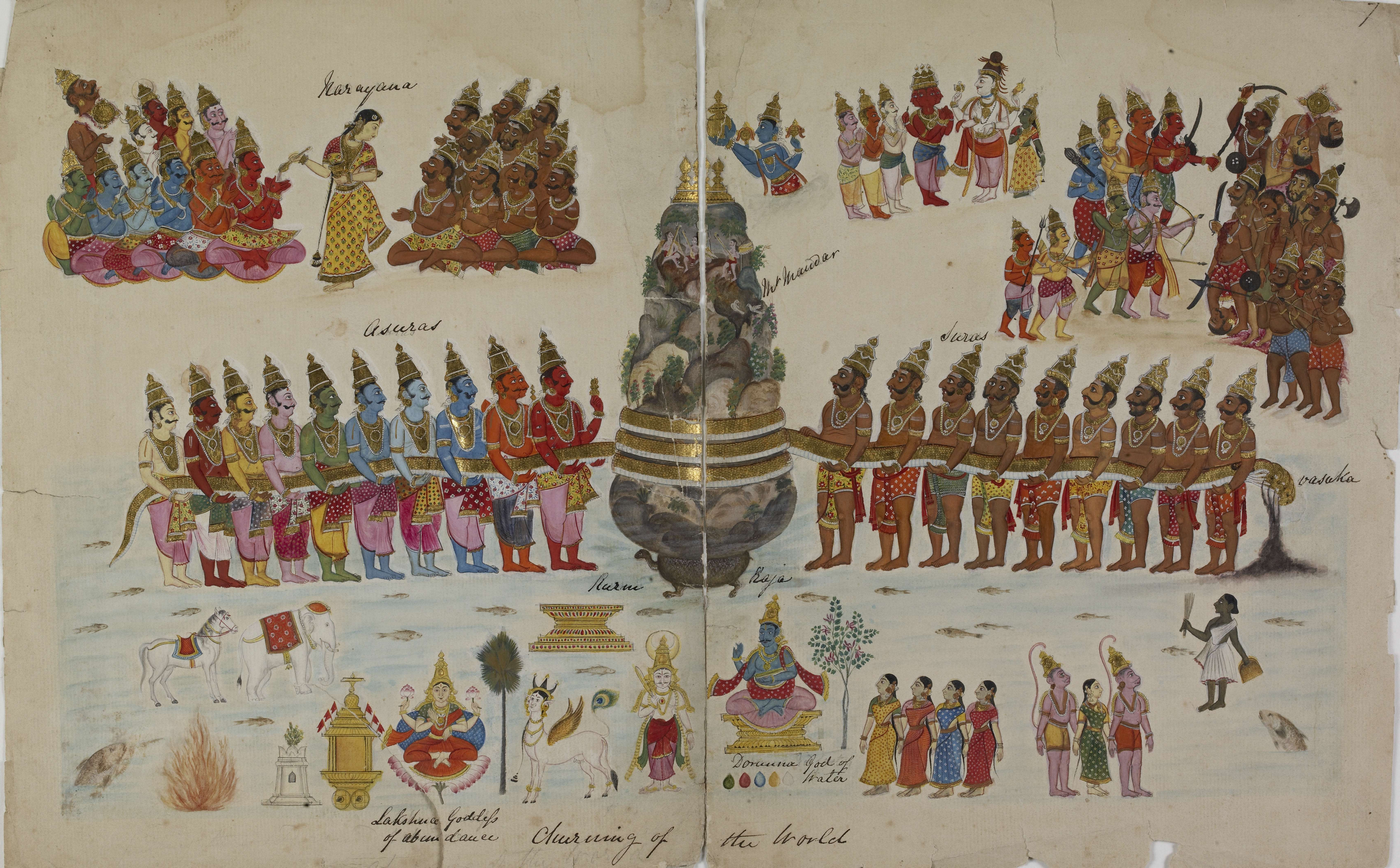 Narayana
Mt Mandar
Asuras
Suras
vasuka
Kurm Raja
Lakshmi Goddess
of abundance
Dorunna God of
Water
Churning of the World